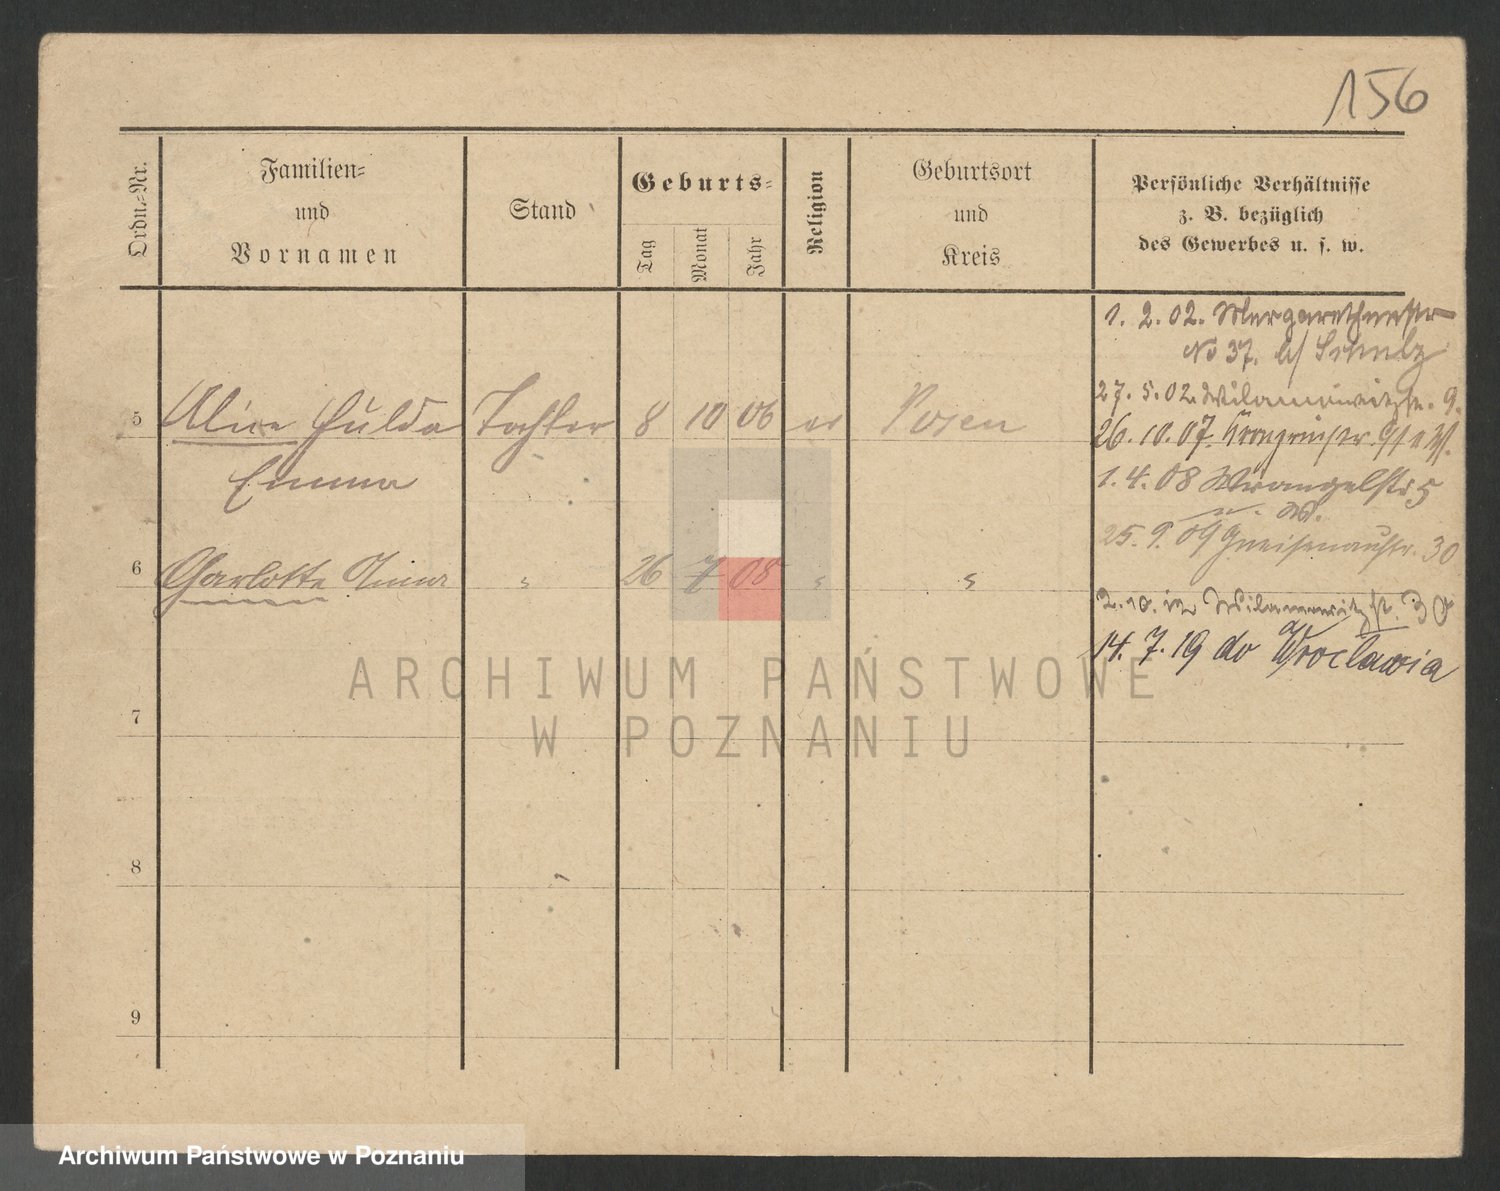 156
Ordn.-Nr.
Familien-
und
Vornamen
Stand
Geburts-
Tag
Monat
Jahr
Religion
Geburtsort
und
Kreis
Persönliche Verhältnisse
z. B. bezüglich
des Gewerbes u. s. w.
1. 2. 02. Margarethenstr
No 37. b/ Schulz
27. 5. 02. Wilamowitzstr. 9.
5 Alice Hulda Tochter 8 10 06 ev Posen
26. 10. 07. Kronprinzstr.
Emma
1. 4. 08 Wrangelstr. 5
25. 9. 09 Gneisenaustr. 30
6 Charlotte Anna " 26 7 08 " "
2. 10. 12 Wilamowitzstr. 30
14. 7. 19 do Wrocławia
ARCHIWUM PAŃSTWOWE
W POZNANIU
7
8
9
Archiwum Państwowe w Poznaniu